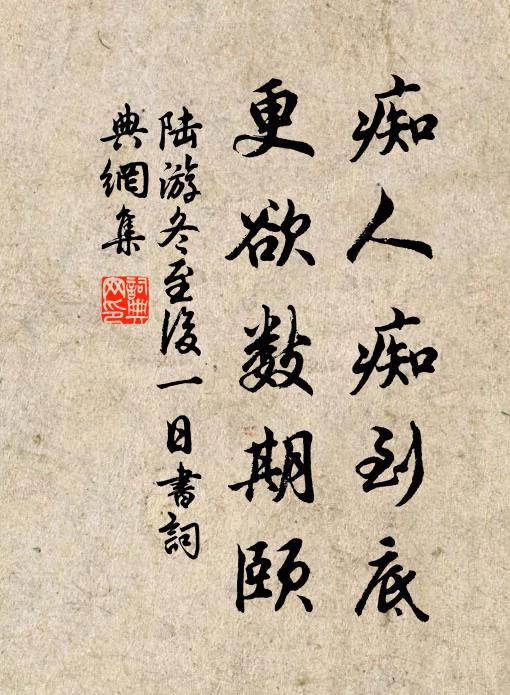 痴人痴到底
更欲数期颐
陆游冬至后一日书词
典網集
詞典
网印